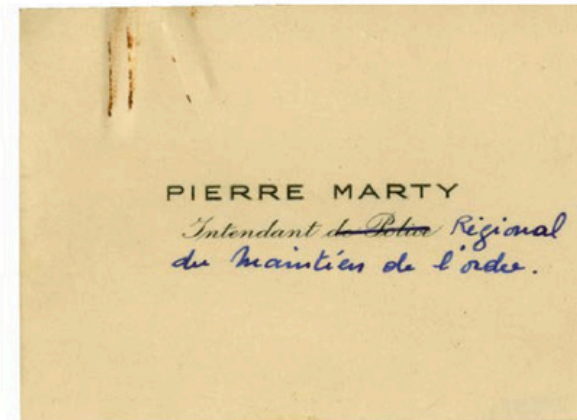 PIERRE MARTY
Intendant de Police Régional
du Maintien de l'ordre.